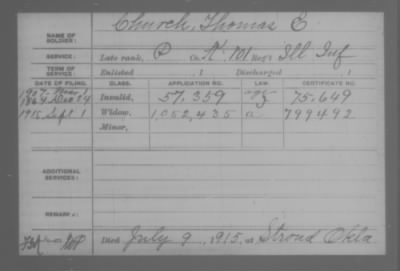 NAME OF SOLDIER: Church, Thomas E
SERVICE: Late rank, P Co. K, 101 Reg't Ill Inf
TERM OF SERVICE: Enlisted , 1 Discharged , 1
DATE OF FILING. CLASS. APPLICATION NO. LAW. CERTIFICATE NO.
1907
1864 Dec 14 Invalid, 57.359 75.649
1915 Sept 1 Widow, 1,052,435 a 799492
Minor,
ADDITIONAL SERVICES:
REMARKS:
Died July 9, 1915, at Stroud Okla